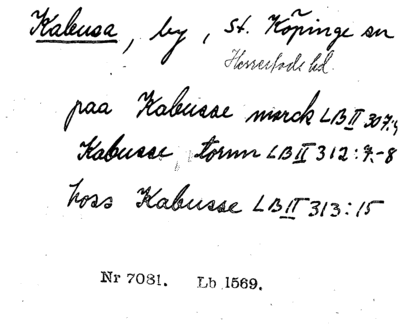 Kabusa, by, St. Köpinge sn
Herrestads hd
paa Kabusse marck LB II 307:4
Kabusse tornn LB II 312:7-8
hoss Kabusse LB II 313:15
Nr 7081. Lb 1569.